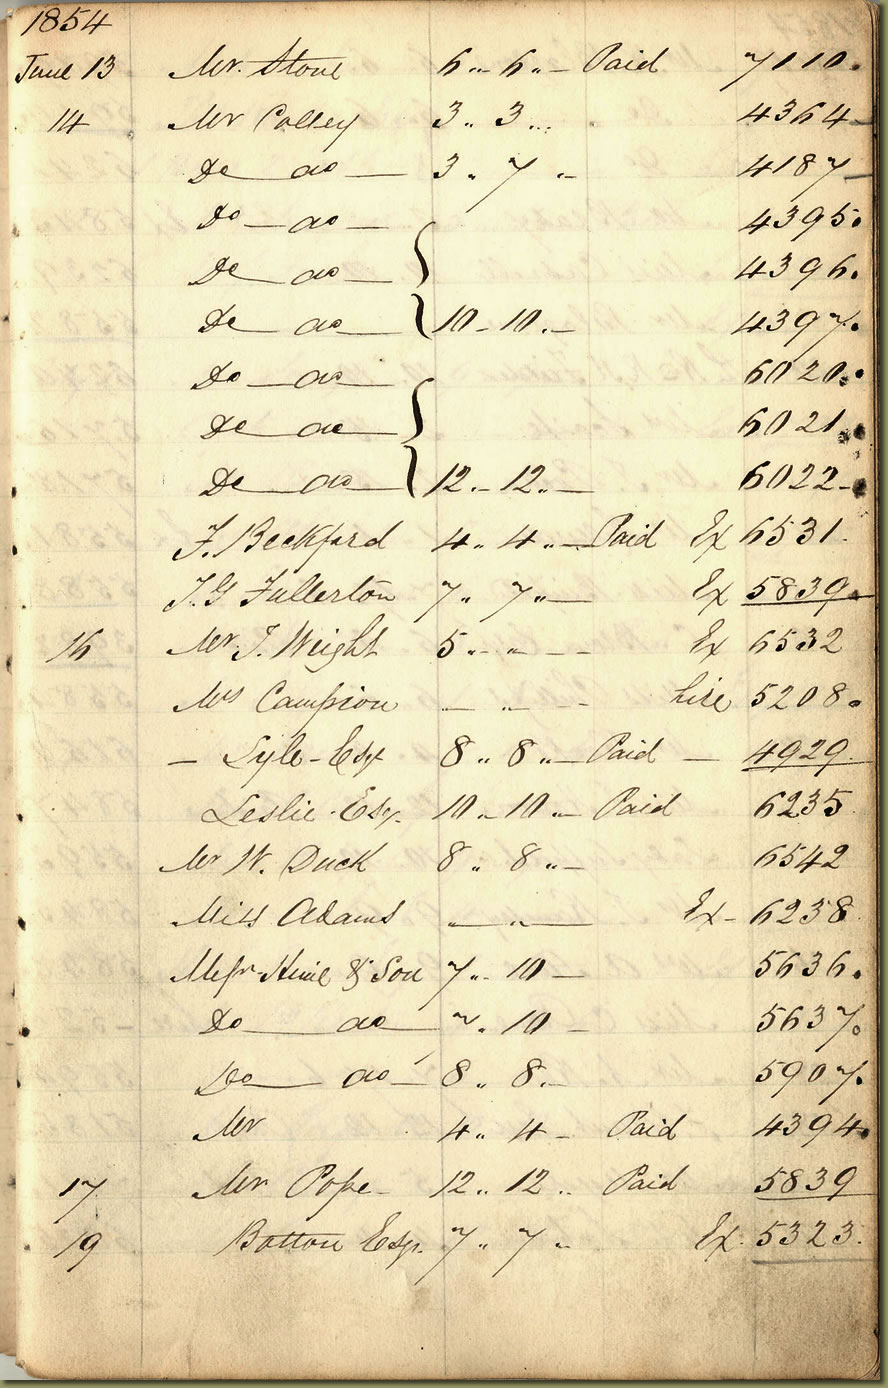 1854
June 13 Mr. Stone 6 „ 6 „ — Paid 7110.
14 Mr Colley 3 „ 3 ... 4364
Do do — 3 „ 7 „ - 4187
Do — do — 4395.
Do do — 4396.
Do do — 10 - 10 . — 4397.
Do — do — 6020.
Do do — 6021.
Do do — 12 .. 12 .. — 6022 -
F. Beckford 4 „ 4 „ — Paid Ex 6531.
J.G Fullerton 7 „ 7 „ — Ex 5839.
16 Mr. J. Weight 5 „ - „ - - Ex 6532
Mrs Campion — „ - - hire 5208.
— Lyle - Esqr 8 „ 8 „ — Paid — 4929.
Leslie. Esqr. 10 „ 10 „ — Paid 6235
Mr W. Duck 8 „ 8 „ - 6542
Miss Adams „ — „ — Ex - 6238
Messrs & Son 7 „ 10 — 5636.
Do do 7 . 10 - 5637.
Do do — 8 „ 8 . - 5907.
Mr 4 „ 4 - Paid 4394.
17 Mr Pope - 12 „ 12 .. Paid 5839
19 Botton Esqr. 7 „ 7 „ - Ex. 5323.